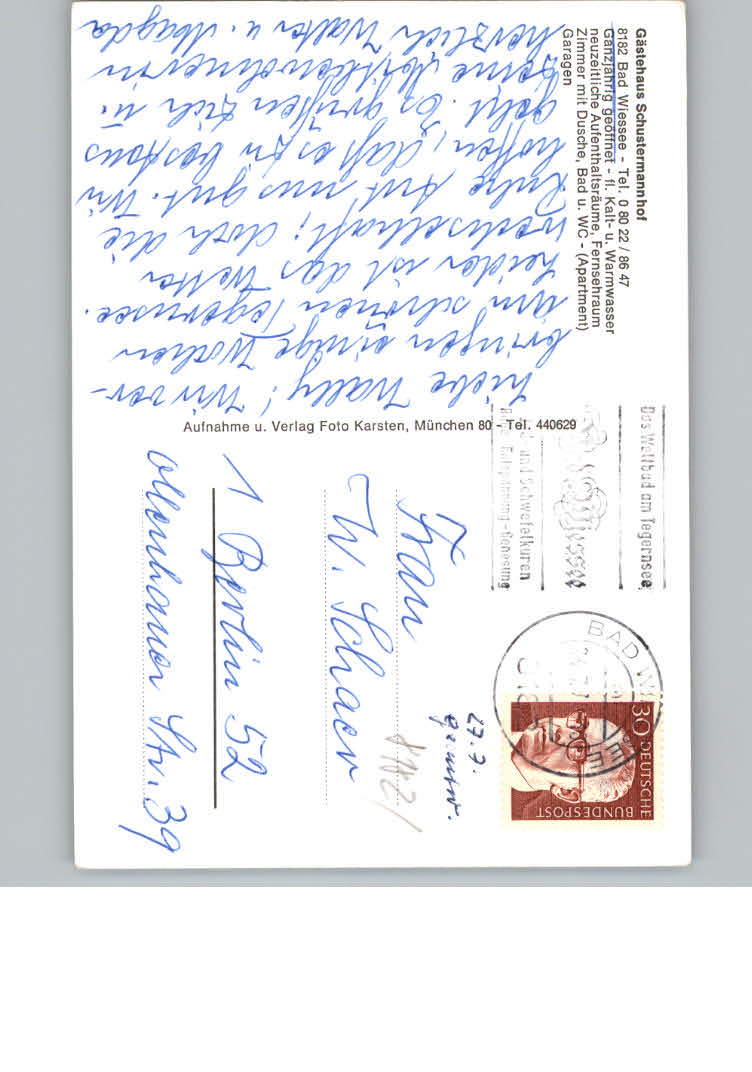 Gästehaus Schustermannhof
8182 Bad Wiessee - Tel. 0 80 22 / 86 47
Ganzjährig geöffnet - fl. Kalt- u. Warmwasser
neuzeitliche Aufenthaltsräume, Fernsehraum
Zimmer mit Dusche, Bad u. WC - (Apartment)
Garagen
Liebe Wally! Wir ver-
bringen einige Wochen
am schönen Tegernsee.
Leider ist das Wetter
wechselhaft; doch die
Ruhe tut uns gut. Wir
hoffen, daß es Dir bestens
geht. Es grüßen Dich u.
Deine Mitbewohnerin
herzlich Walter u. Magda
Aufnahme u. Verlag Foto Karsten, München 80 - Tel. 440629
Das Weltbad am Tegernsee
Bad Wiessee
und Schwefelkuren
Entspannung - Genesung
BAD WI
EE
30 DEUTSCHE
BUNDESPOST
27.7.
Frau
W. Schaer
1 Berlin 52
Ollenhauer Str. 39